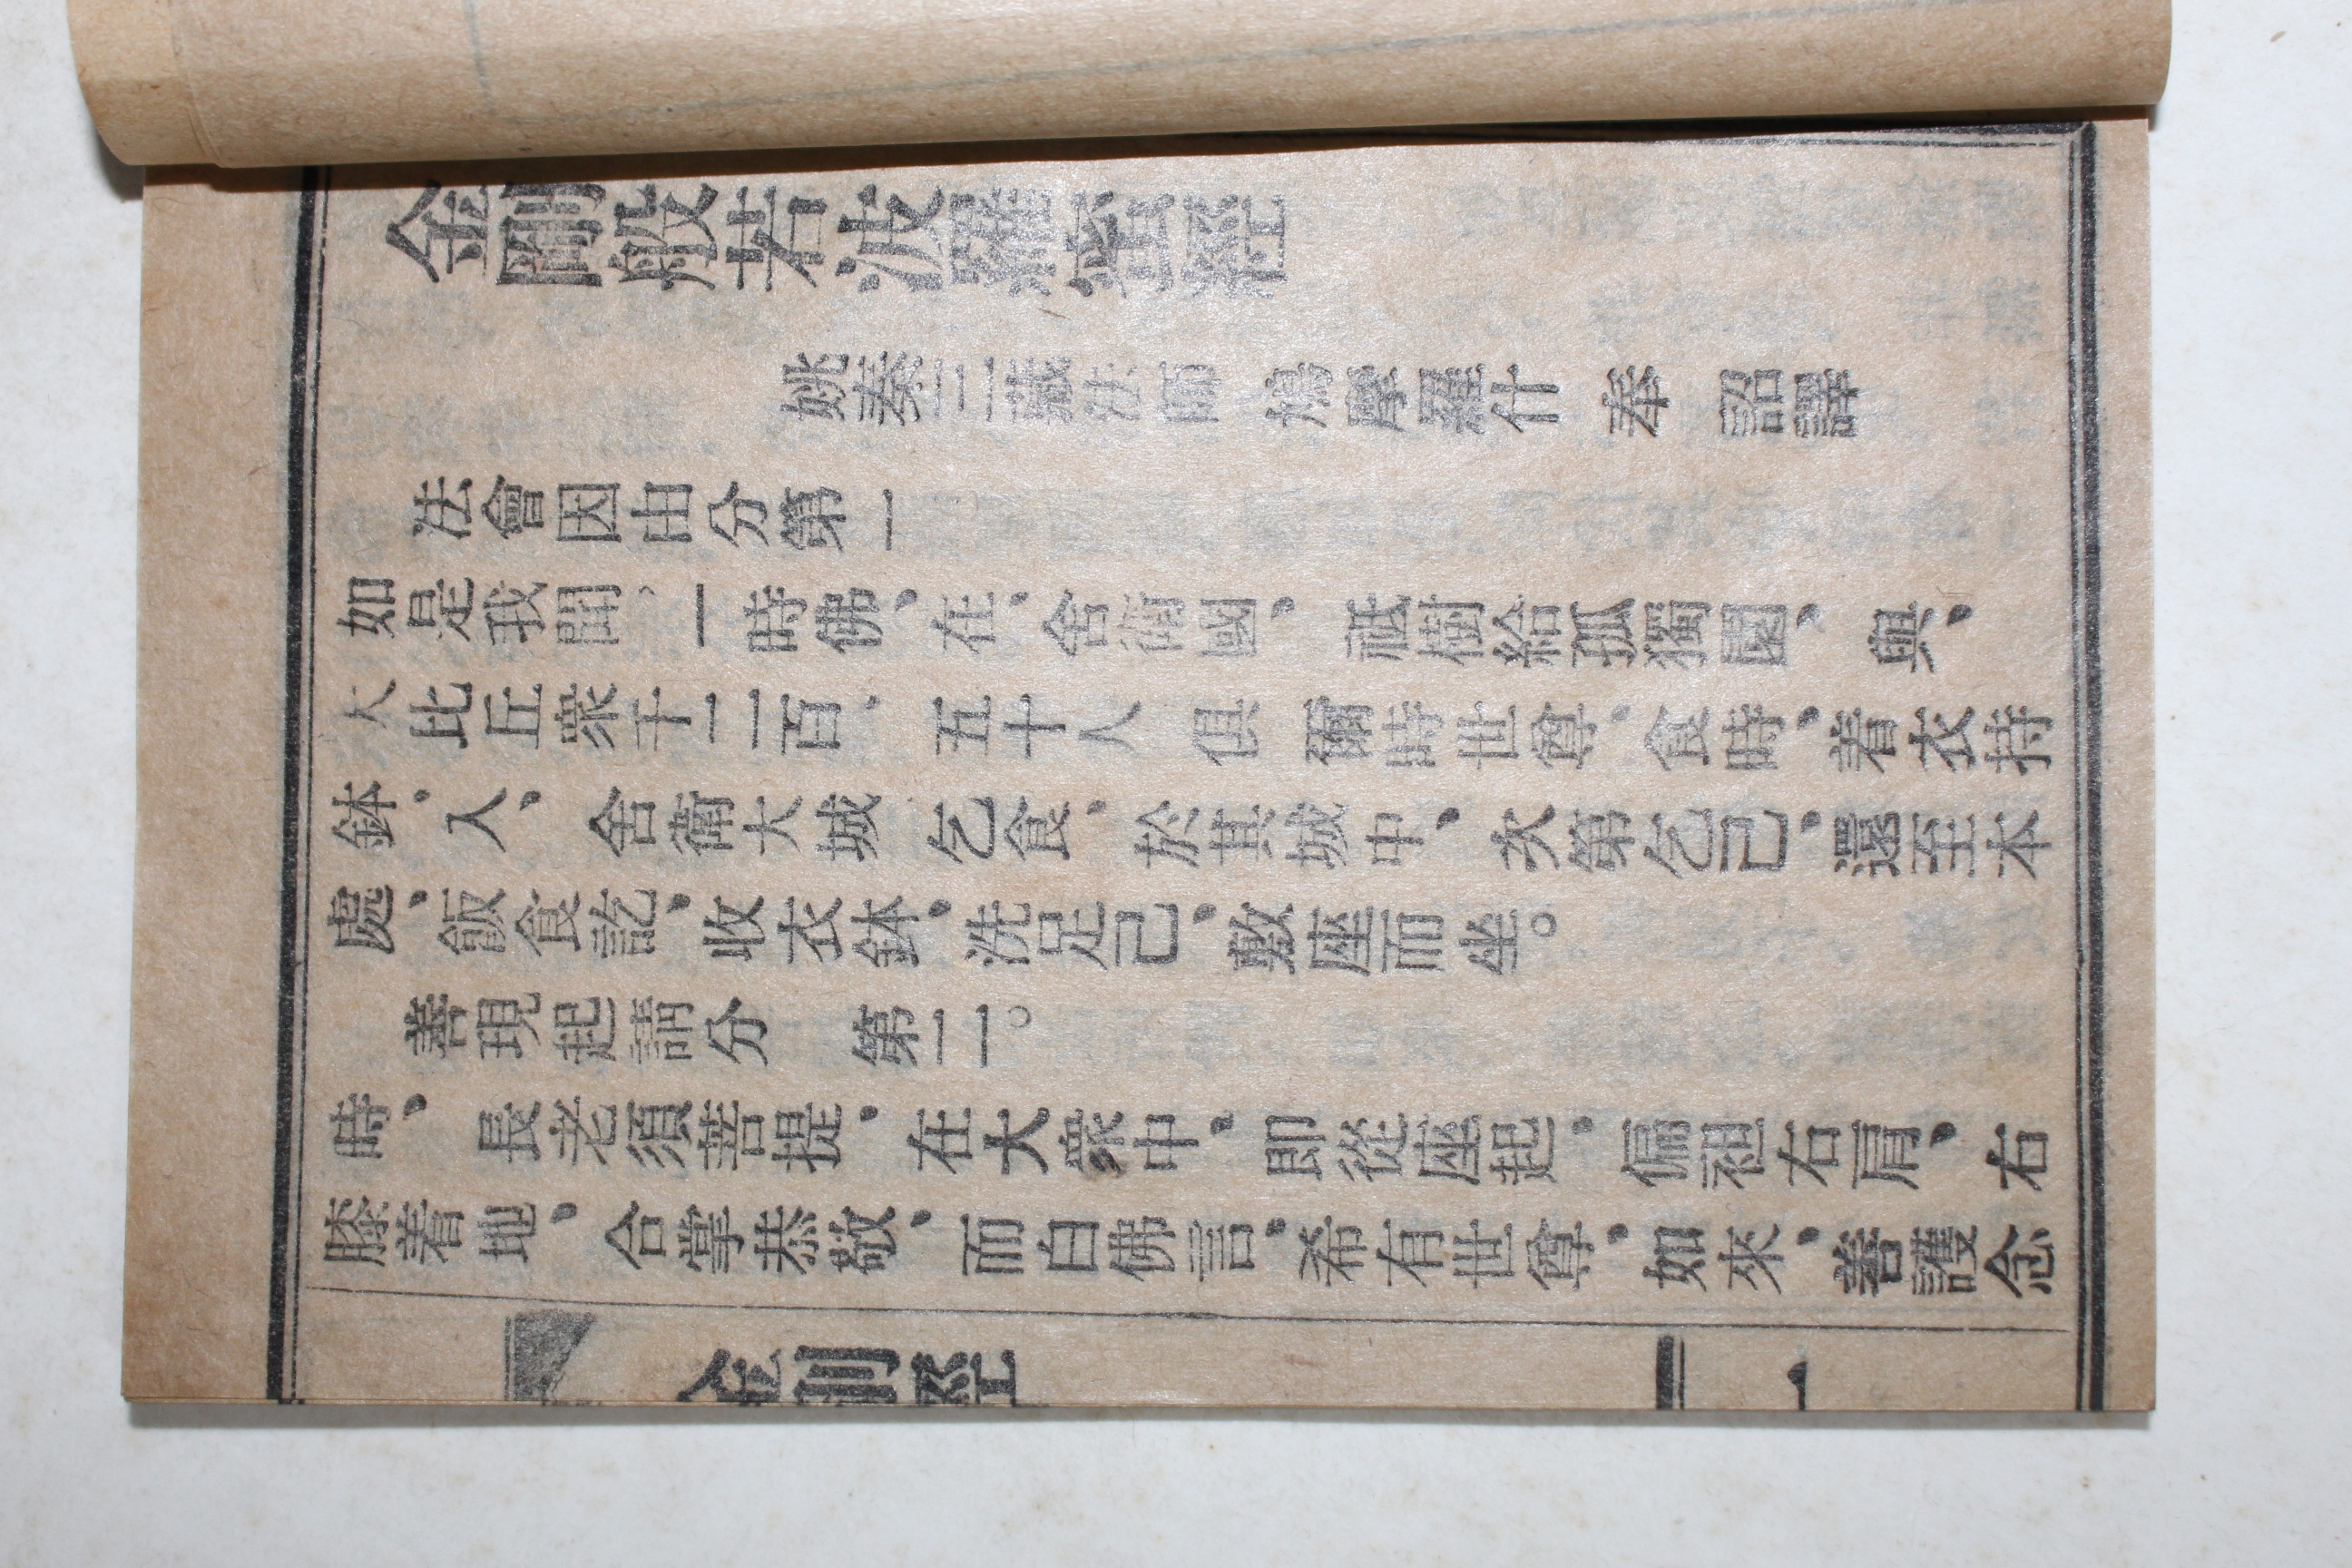 金剛般若波羅蜜經
姚秦三藏法師 鳩摩羅什 奉 詔譯
法會因由分第一
如是我聞、一時佛、在、舍衛國、祗樹給孤獨園、與、
大比丘衆千二百、五十人 俱 爾時世尊、食時、着衣持
鉢、入、舍衛大城 乞食、於其城中、次第乞己、還至本
處、飯食訖、收衣鉢、洗足己、敷座而坐。
善現起請分 第二。
時、長老須菩提、在大衆中、即從座起、偏袒右肩、右
膝着地、合掌恭敬、而白佛言、希有世尊、如來、善護念
金剛經 一